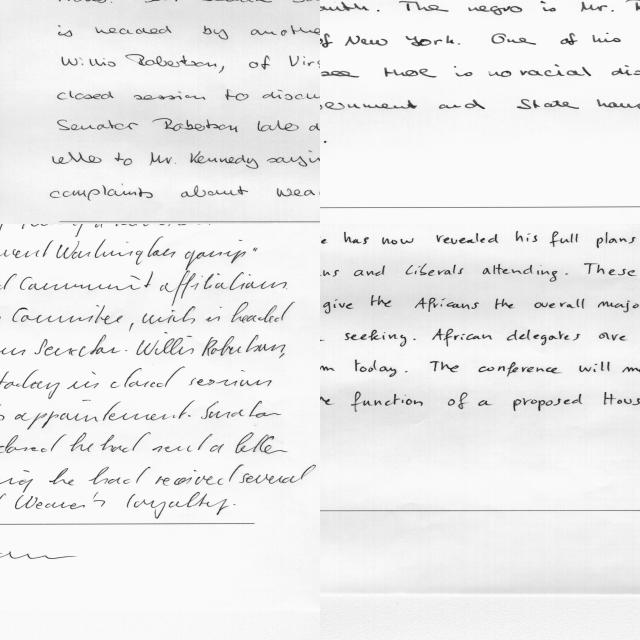 is headed by anothe
Willis Robertson, of Vir
closed session to discu
Senator Robertson late d
to Mr. Kennedy sayi
complaints about Wea
The negro is Mr.
of New York. One of his
there is no racial dis
and State hou
Washington gossip"
Communist affiliations
Committee, which is headed
Senator. Willis Robertson,
today in closed session
appointement. Senator
he had sent a letter
he had received several
Weaver's loyalty.
e has now revealed his full plans
ns and Liberals attending. These
give the Africans the overall majo
seeking. African delegates are
m today. The conference will m
e function of a proposed Hous